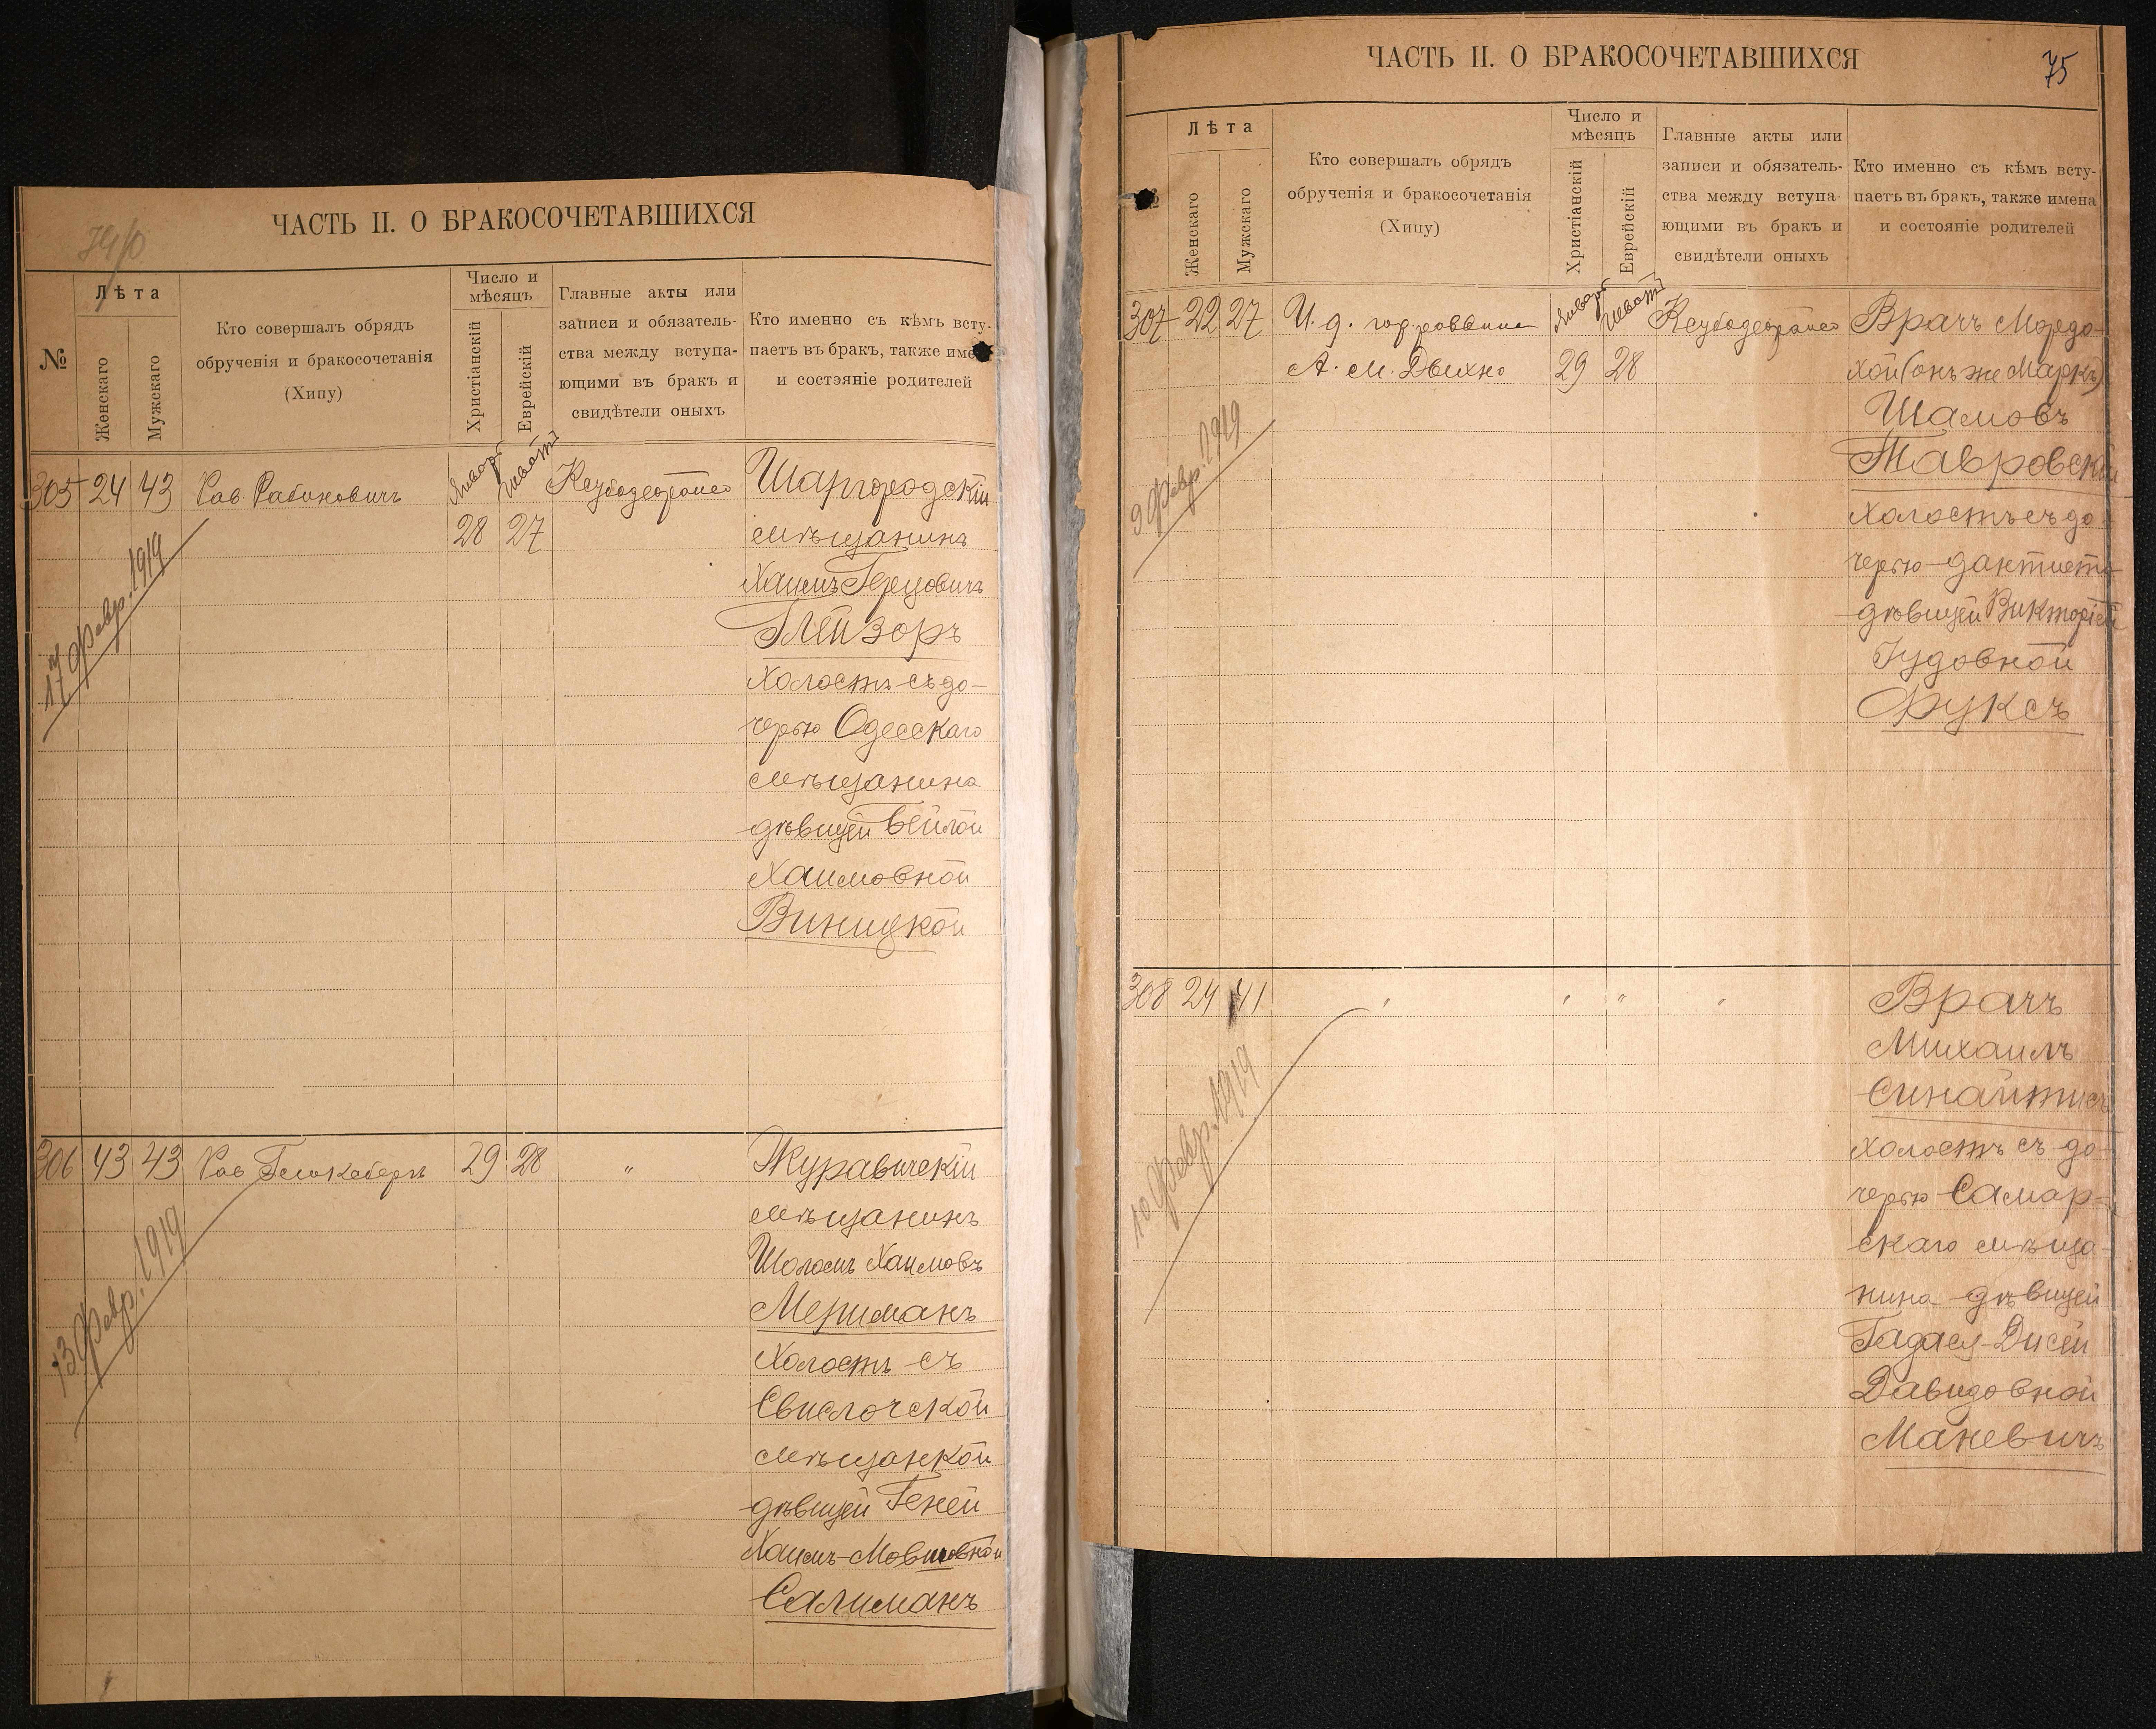 74/0
ЧАСТЬ II. О БРАКОСОЧЕТАВШИХСЯ
№
Лѣта
Женскаго
Мужскаго
Кто совершалъ обрядъ
обрученія и бракосочетанія
(Хипу)
Число и
мѣсяцъ
Христіанскій
Еврейскій
Главные акты или
записи и обязатель-
ства между вступа-
ющими въ бракъ и
свидѣтели оныхъ
Кто именно съ кѣмъ всту-
паетъ въ бракъ, также име
и состэяніе родителей
305 24 43 Рав. Рабиновичъ Январь Шватъ Кеубодеорайсо Шаргородскій
28 27 мѣщанинъ
Хаимъ Герцовичъ
Глейзоръ
холостъ съ до-
черью Одесскаго
мѣщанина
дѣвицей Бейлой
Хаимовной
Виницкой
17 февр. 1919
306 43 43 Рав 29 28 " Журавичскій
мѣщанинъ
Шоломъ Хаимовъ
Мериманъ
холостъ съ
Свислочской
мѣщанкой
дѣвицей Геней
Хаимъ-Мовшовной
Салиманъ
13 февр. 1919
ЧАСТЬ II. О БРАКОСОЧЕТАВШИХСЯ
75
Лѣта
Женскаго
Мужскаго
Кто совершалъ обрядъ
обрученія и бракосочетанія
(Хипу)
Число и
мѣсяцъ
Христіанскій
Еврейскій
Главные акты или
записи и обязатель-
ства между вступа-
ющими въ бракъ и
свидѣтели оныхъ
Кто именно съ кѣмъ всту-
паетъ въ бракъ, также имена
и состояніе родителей
307 22 27 И. д. гор. раввина Январь Шватъ Кеубодеорайсо Врачъ Мордо-
А. М. Двихно 29 28 хой (онъ же Маркъ)
Шамовъ
Тавровскій
холостъ съ до-
черью дантиста
дѣвицей Викторіей
Іудовной
Фуксъ
9 февр. 1919
308 24 41 " " " " Врачъ
Михаилъ
Синайтисъ
холостъ съ до-
черью Самар-
скаго мѣща-
нина дѣвицей
Гадасея-Дисей
Давидовной
Маневичъ
10 февр. 1919